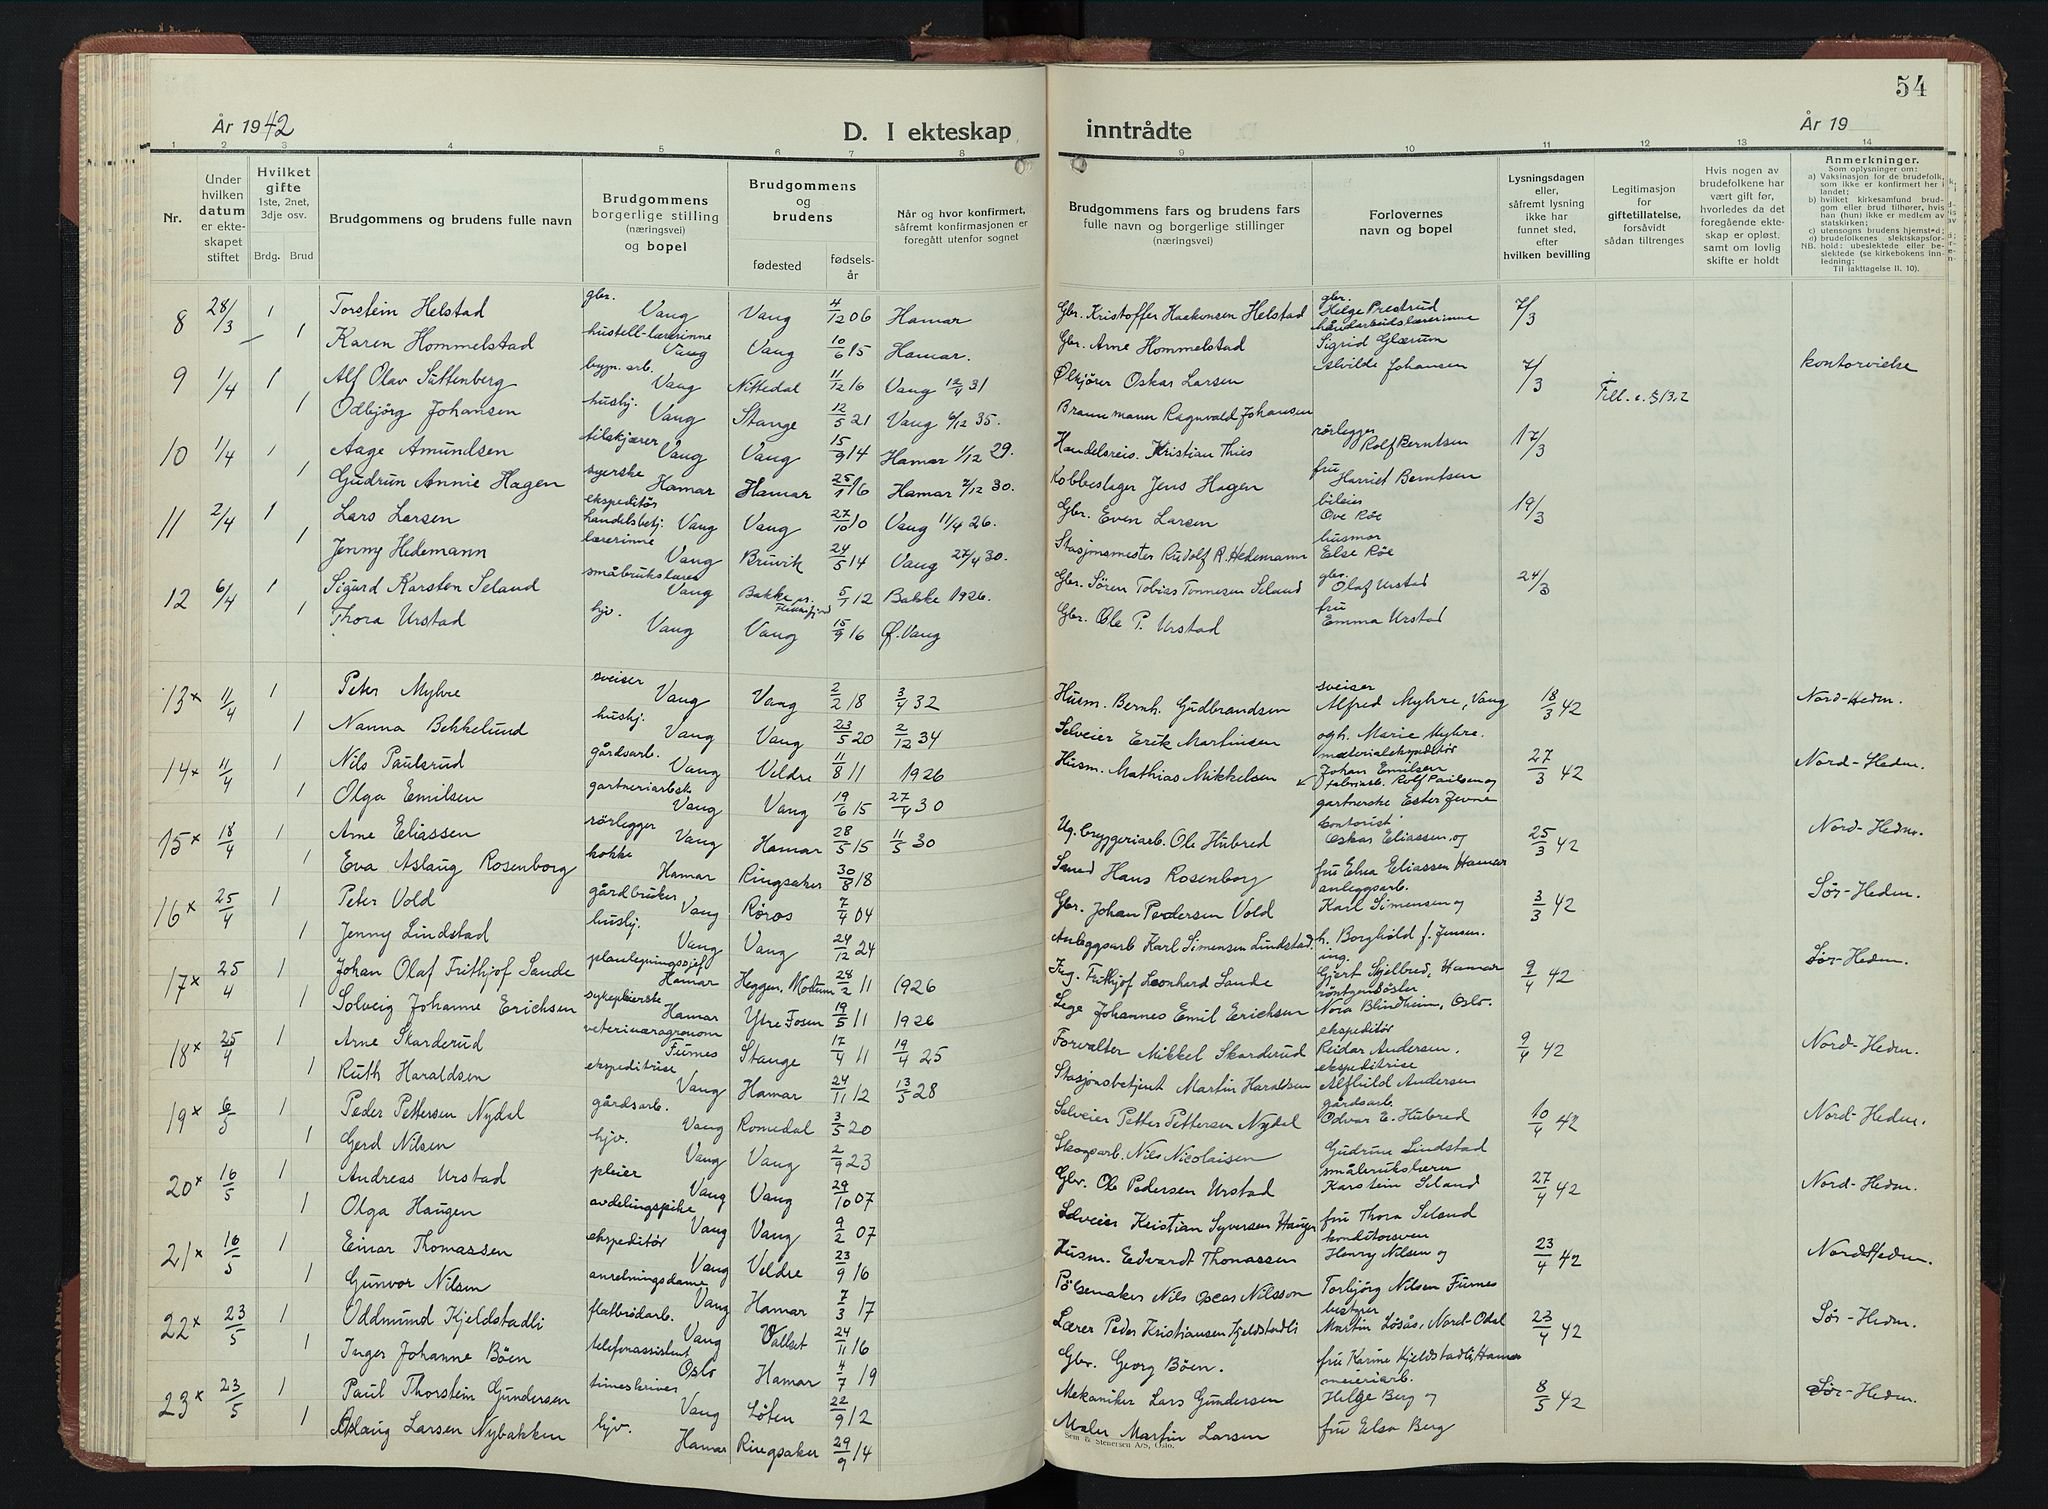 År 1942
D. I ekteskap
1 2 3 4 5 6 7 8
Nr.
Under hvilken datum er ekteskapet stiftet
Hvilket gifte 1ste, 2net, 3dje osv.
Brdg. Brud
Brudgommens og brudens fulle navn
Brudgommens borgerlige stilling (næringsvei) og bopel
Brudgommens og brudens
fødested
fødselsår
Når og hvor konfirmert, såfremt konfirmasjonen er foregått utenfor sognet
8 28/3 1 Torstein Helstad gbr. Vang Vang 4/12 06 Hamar
1 Karen Hommelstad hustell-lærerinne Vang Vang 10/6 15 Hamar.
9 1/4 1 Alf Olav Sattenberg bygn. arb. Vang Nittedal 11/12 16 Vang 12/4 31
1 Odbjörg Johansen hushj. Vang Stange 12/5 21 Vang 6/12 35.
10 1/4 1 Aage Amundsen tilskjærer Vang Vang 15/9 14 Hamar 1/12 29.
1 Gudrun Annie Hagen syerske Hamar Hamar 25/1 16 Hamar 7/12 30.
11 2/4 1 Lars Larsen ekspeditör handelsbetj. Vang Vang 27/10 10 Vang 11/4 26.
1 Jenny Hedemann lærerinne Vang Bruvik 24/5 14 Vang 27/4 30.
12 6/4 1 Sigurd Karsten Seland småbrukslærer Vang Bakke pr. Flekkefjord 5/1 12 Bakke 1926.
1 Thora Urstad hjv. Vang Vang 15/9 16 Ø. Vang
13 x 11/4 1 Peter Myhre sveiser Vang Vang 2/2 18 3/4 32
1 Nanna Bekkelund hushj. Vang Vang 23/5 20 2/12 34
14 x 11/4 1 Nils Paulsrud gårdsarb. Vang Veldre 11/8 11 1926
1 Olga Emilsen gartneriarbsk Vang Vang 19/6 15 27/4 30
15 x 18/4 1 Arne Eliassen rörlegger Vang Hamar 28/5 15 11/5 30
1 Eva Aslaug Rosenborg kokke Hamar Ringsaker 30/8 18
16 x 25/4 1 Peter Vold gårdbruker Vang Röros 7/4 04
1 Jenny Lindstad hushj. Vang Vang 24/12 24
17 x 25/4 1 Johan Olaf Frithjof Sande planlegningssjef Hamar Heggen, Modum 28/2 11 1926
1 Solveig Johanne Erichsen sykepleierske Hamar Ytre Fosen 19/5 11 1926
18 x 25/4 1 Arne Skarderud veterinæragronom Furnes Stange 17/4 11 19/4 25
1 Ruth Haraldsen ekspeditrise Vang Hamar 24/11 12 13/5 28
19 x 6/5 1 Peder Pettersen Nydal gårdsarb. Vang Romedal 3/5 20
1 Gerd Nilsen hjv. Vang Vang 2/9 23
20 x 16/5 1 Andreas Urstad pleier Vang Vang 29/10 07
1 Olga Haugen avdelingspike Vang Vang 9/2 07
21 x 16/5 1 Einar Thomassen ekspeditør Vang Veldre 23/9 16
1 Gunvor Nilsen anretningsdame Vang Hamar 7/3 17
22 x 23/5 1 Oddmund Kjeldstadli flatbrödarb. Vang Vallset 24/11 16
1 Inger Johanne Böen telefonassistent Oslo Hamar 4/7 19
23 x 23/5 1 Paul Thorstein Gundersen timeskriver Vang Löten 22/9 12
1 Aslaug Larsen Nybakken hjv. Hamar Ringsaker 29/9 14
54
inntrådte
År 19
9 10 11 12 13 14
Brudgommens fars og brudens fars fulle navn og borgerlige stillinger (næringsvei)
Forlovernes navn og bopel
Lysningsdagen eller, såfremt lysning ikke har funnet sted, efter hvilken bevilling
Legitimasjon for giftetillatelse, forsåvidt sådan tiltrenges
Hvis nogen av brudefolkene har vært gift før, hvorledes da det foregående ekteskap er opløst, samt om lovlig skifte er holdt
Anmerkninger.
Som oplysninger om:
a) Vaksinasjon for de brudefolk, som ikke er konfirmert her i landet;
b) hvilket kirkesamfund brudgom eller brud tilhører, hvis han (hun) ikke er medlem av statskirken;
c) utensogns brudens hjemsted;
d) brudefolkenes slektskapsforhold: ubeslektede eller beslektede (se kirkebokens innledning;
NB.
Til iakttagelse II. 10).
Gbr. Kristoffer Haakonsen Helstad gbr. Helge Prestrud 7/3
Gbr. Arne Hommelstad håndarbeidslærerinne Sigrid Glærum
Ølkjörer Oskar Larsen Alvilde Johansen 7/3 Till. kontorvielse
Brannmann Ragnvald Johansen
Handelsreis. Kristian Thies rörlegger Rolf Berntsen 17/3
Kobberslager Jens Hagen fru Harriet Berntsen
Gbr. Even Larsen bileier Ove Röe 19/3
Stasjonsmester Rudolf R. Hedemann husmor Else Röe
Gbr. Sören Tobias Tonnesen Seland gbr. Olaf Urstad 24/3
Gbr. Ole P. Urstad fru Emma Urstad
Husm. Bernh. Gudbrandsen sveiser Alfred Myhre, Vang 18/3 42 Nord-Hedm.
Selveier Erik Martinsen og h. Marie Myhre.
Husm. Mathias Mikkelsen materialekspeditör Johan Emilsen 27/3 42 Nord-Hedm.
fabriarb. Rolf Paulsen og gartnerske Ester Jevne
Ug. bryggeriarb. Ole Hubred kontorist Oskar Eliassen og 25/3 42 Nord-Hedm.
Smed Hans Rosenborg fru Elna Eliassen Hamar
Gbr. Johan Pedersen Vold anleggsarb. Karl Simensen og 3/3 42 Sør-Hedm.
Anleggsarb Karl Simensen Lindstad. h. Borghild f. Jensen.
Ing. Frithjof Leonhard Sande ing. Gjert Skjelbred, Hamar 9/4 42 Sør-Hedm.
Lege Johannes Emil Erichsen röntgensöster Nora Blindheim, Oslo.
Forvalter Mikkel Skarderud ekspeditör Reidar Andersen. 9/4 42 Nord-Hedm.
Stasjonsbetjent Martin Haraldsen ekspeditrise Alfhild Andersen
Selveier Petter Pettersen Nydal gårdsarb. Odvar E. Hubred 10/4 42 Nord-Hedm.
Skogsarb. Nils Nicolaisen Gudrun Lindstad
Gbr. Ole Pedersen Urstad småbrukslærer Karstein Seland 27/4 42 Nord-Hedm.
Selveier Kristian Syversen Haugen fru Thora Seland
Husm. Edvardt Thomassen konditorsven Henry Nilsen og 23/4 42 Nord-Hedm.
Pölsemaker Nils Oscar Nilsson Torbjörg Nilsen Furnes
Lærer Peder Kristiansen Kjeldstadli bestyrer Martin Løsås, Nord-Odal 23/4 42 Sør-Hedm.
Gbr. Georg Böen. fru Karine Kjeldstadli, Hamar
Mekaniker Lars Gundersen meieriarb. Helge Berg og 8/5 42 Sør-Hedm.
Maler Martin Larsen fru Elsa Berg
Sem & Stenersen A/S, Oslo.